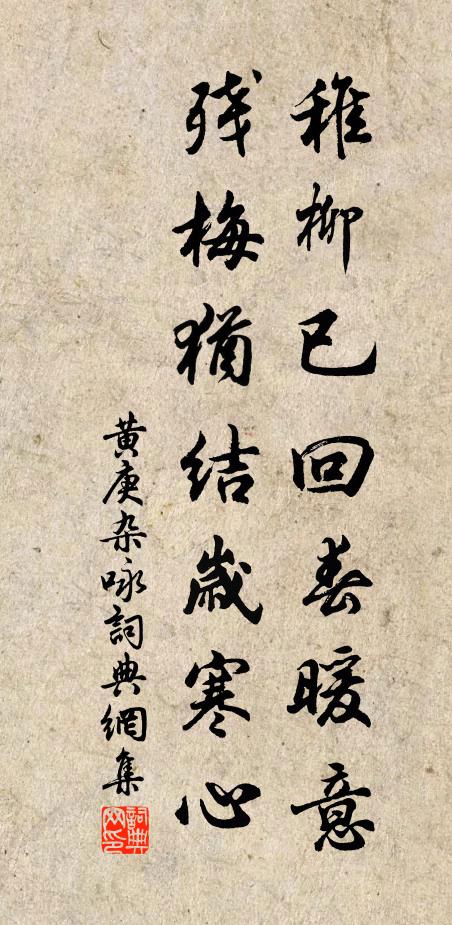 稚柳已回春暖意
残梅猶结歲寒心
黄庚杂咏詞典網集
詞典网印